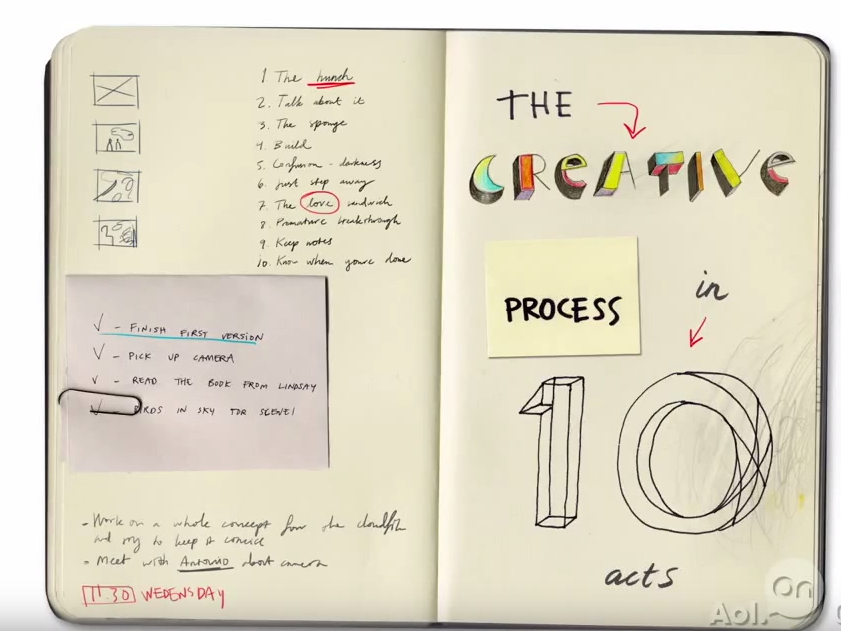 1 The hunch
2. Talk about it
3. The sponge
4. Build
5. Confusion - darkness
6. Just step away
7. The love sandwich
8. Premature breakthrough
9. Keep notes
10. Know when youre done
√ - FINISH FIRST VERSION
√ - PICK UP CAMERA
√ - READ THE BOOK FROM LINDSAY
√ - BIRDS IN SKY FOR SCENE 1
- Work on a whole concept from the
and try to keep it concise
- Meet with Antonio about camera
11.30 WEDENSDAY
THE
CREATIVE
PROCESS
in
10
acts
Aol. On